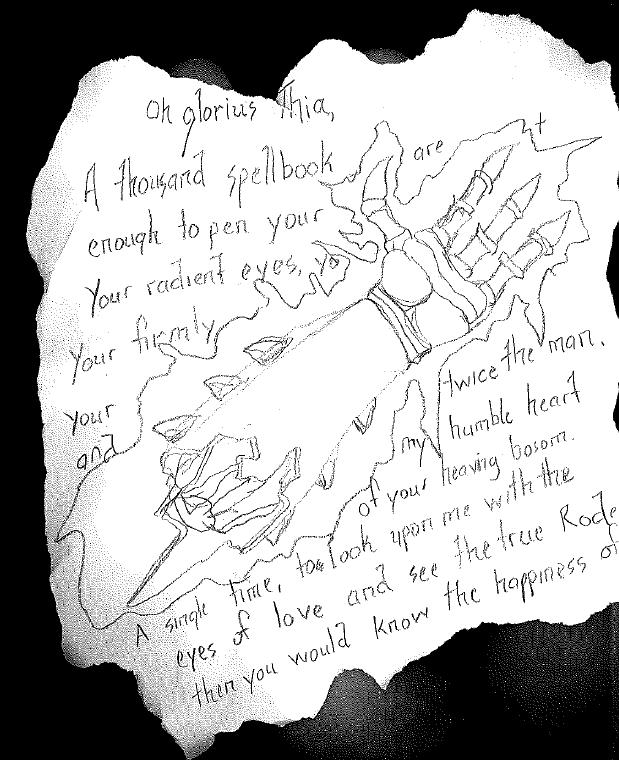 Oh glorius Thia,
are t
A thousand spellbook
enough to pen your
Your radient eyes, yo
Your firmly
twice the man.
your my humble heart
and of your heaving bosom.
A single time, to look upon me with the
eyes of love and see the true Rode
then you would know the happiness of